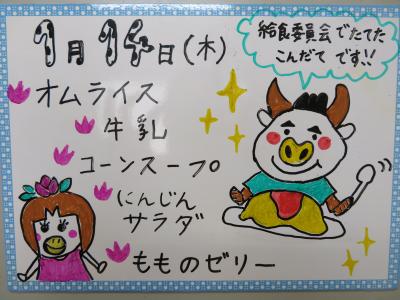 1月14日(木)
給食委員会でたてた
こんだて です!!
オムライス
牛乳
コーンスープ
にんじん
サラダ
もものゼリー